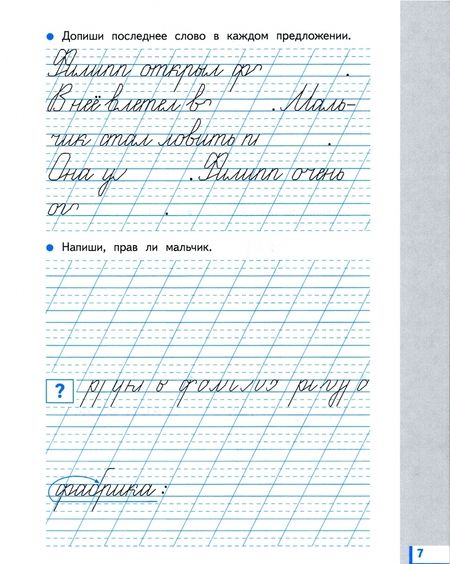 Допиши последнее слово в каждом предложении.
Филипп открыл фо .
В неё влетел во . Маль-
чик стал ловить пт .
Она ул . Филипп очень
ог .
Напиши, прав ли мальчик.
?
фабрика:
7